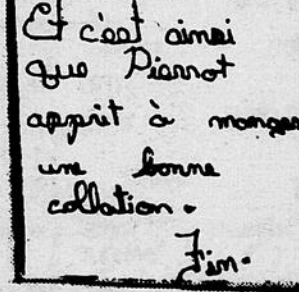 Et c'est ainsi
que Pierrot
apprit à manger
une bonne
collation.
Fin.